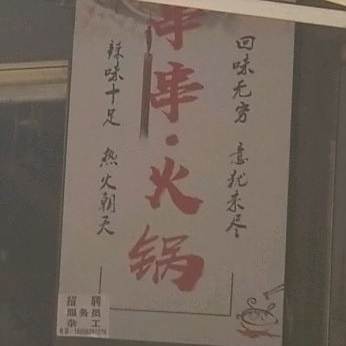 串串·火锅
回味无穷 意犹未尽
辣味十足 热火朝天
招聘
服务员
杂工